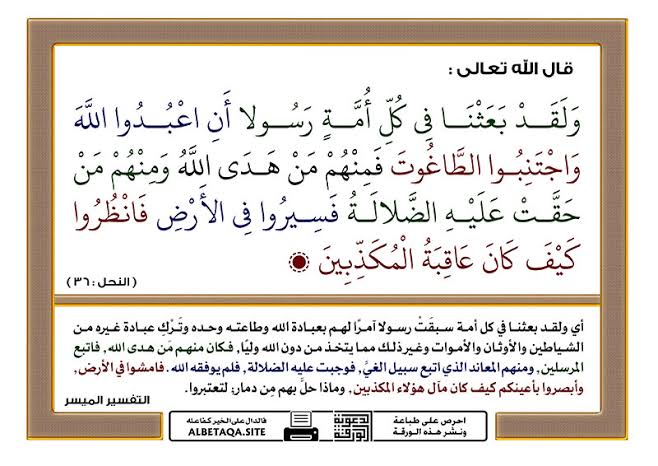 قال الله تعالى :
وَلَقَدْ بَعَثْنَا فِي كُلِّ أُمَّةٍ رَسُولا أَنِ اعْبُدُوا اللَّهَ
وَاجْتَنِبُوا الطَّاغُوتَ فَمِنْهُمْ مَنْ هَدَى اللَّهُ وَمِنْهُمْ مَنْ
حَقَّتْ عَلَيْهِ الضَّلالَةُ فَسِيرُوا فِي الأَرْضِ فَانْظُرُوا
كَيْفَ كَانَ عَاقِبَةُ الْمُكَذِّبِينَ
( النحل : ٣٦ )
أي ولقد بعثنا في كل أمة سبقَتْ رسولا آمرًا لهم بعبادة الله وطاعته وحده وتَرْكِ عبادة غيره من
الشياطين والأوثان والأموات وغير ذلك مما يتخذ من دون الله وليًا, فكان منهم مَن هدى الله, فاتبع
المرسلين, ومنهم المعاند الذي اتبع سبيل الغيِّ, فوجبت عليه الضلالة, فلم يوفقه الله. فامشوا في الأرض,
وأبصروا بأعينكم كيف كان مآل هؤلاء المكذبين, وماذا حلَّ بهم مِن دمار؛ لتعتبروا.
التفسير الميسر
احرص على طباعة
ونشر هذه الورقة
الدعوية
الورقة
فالدال على الخير كفاعله
ALBETAQA.SITE